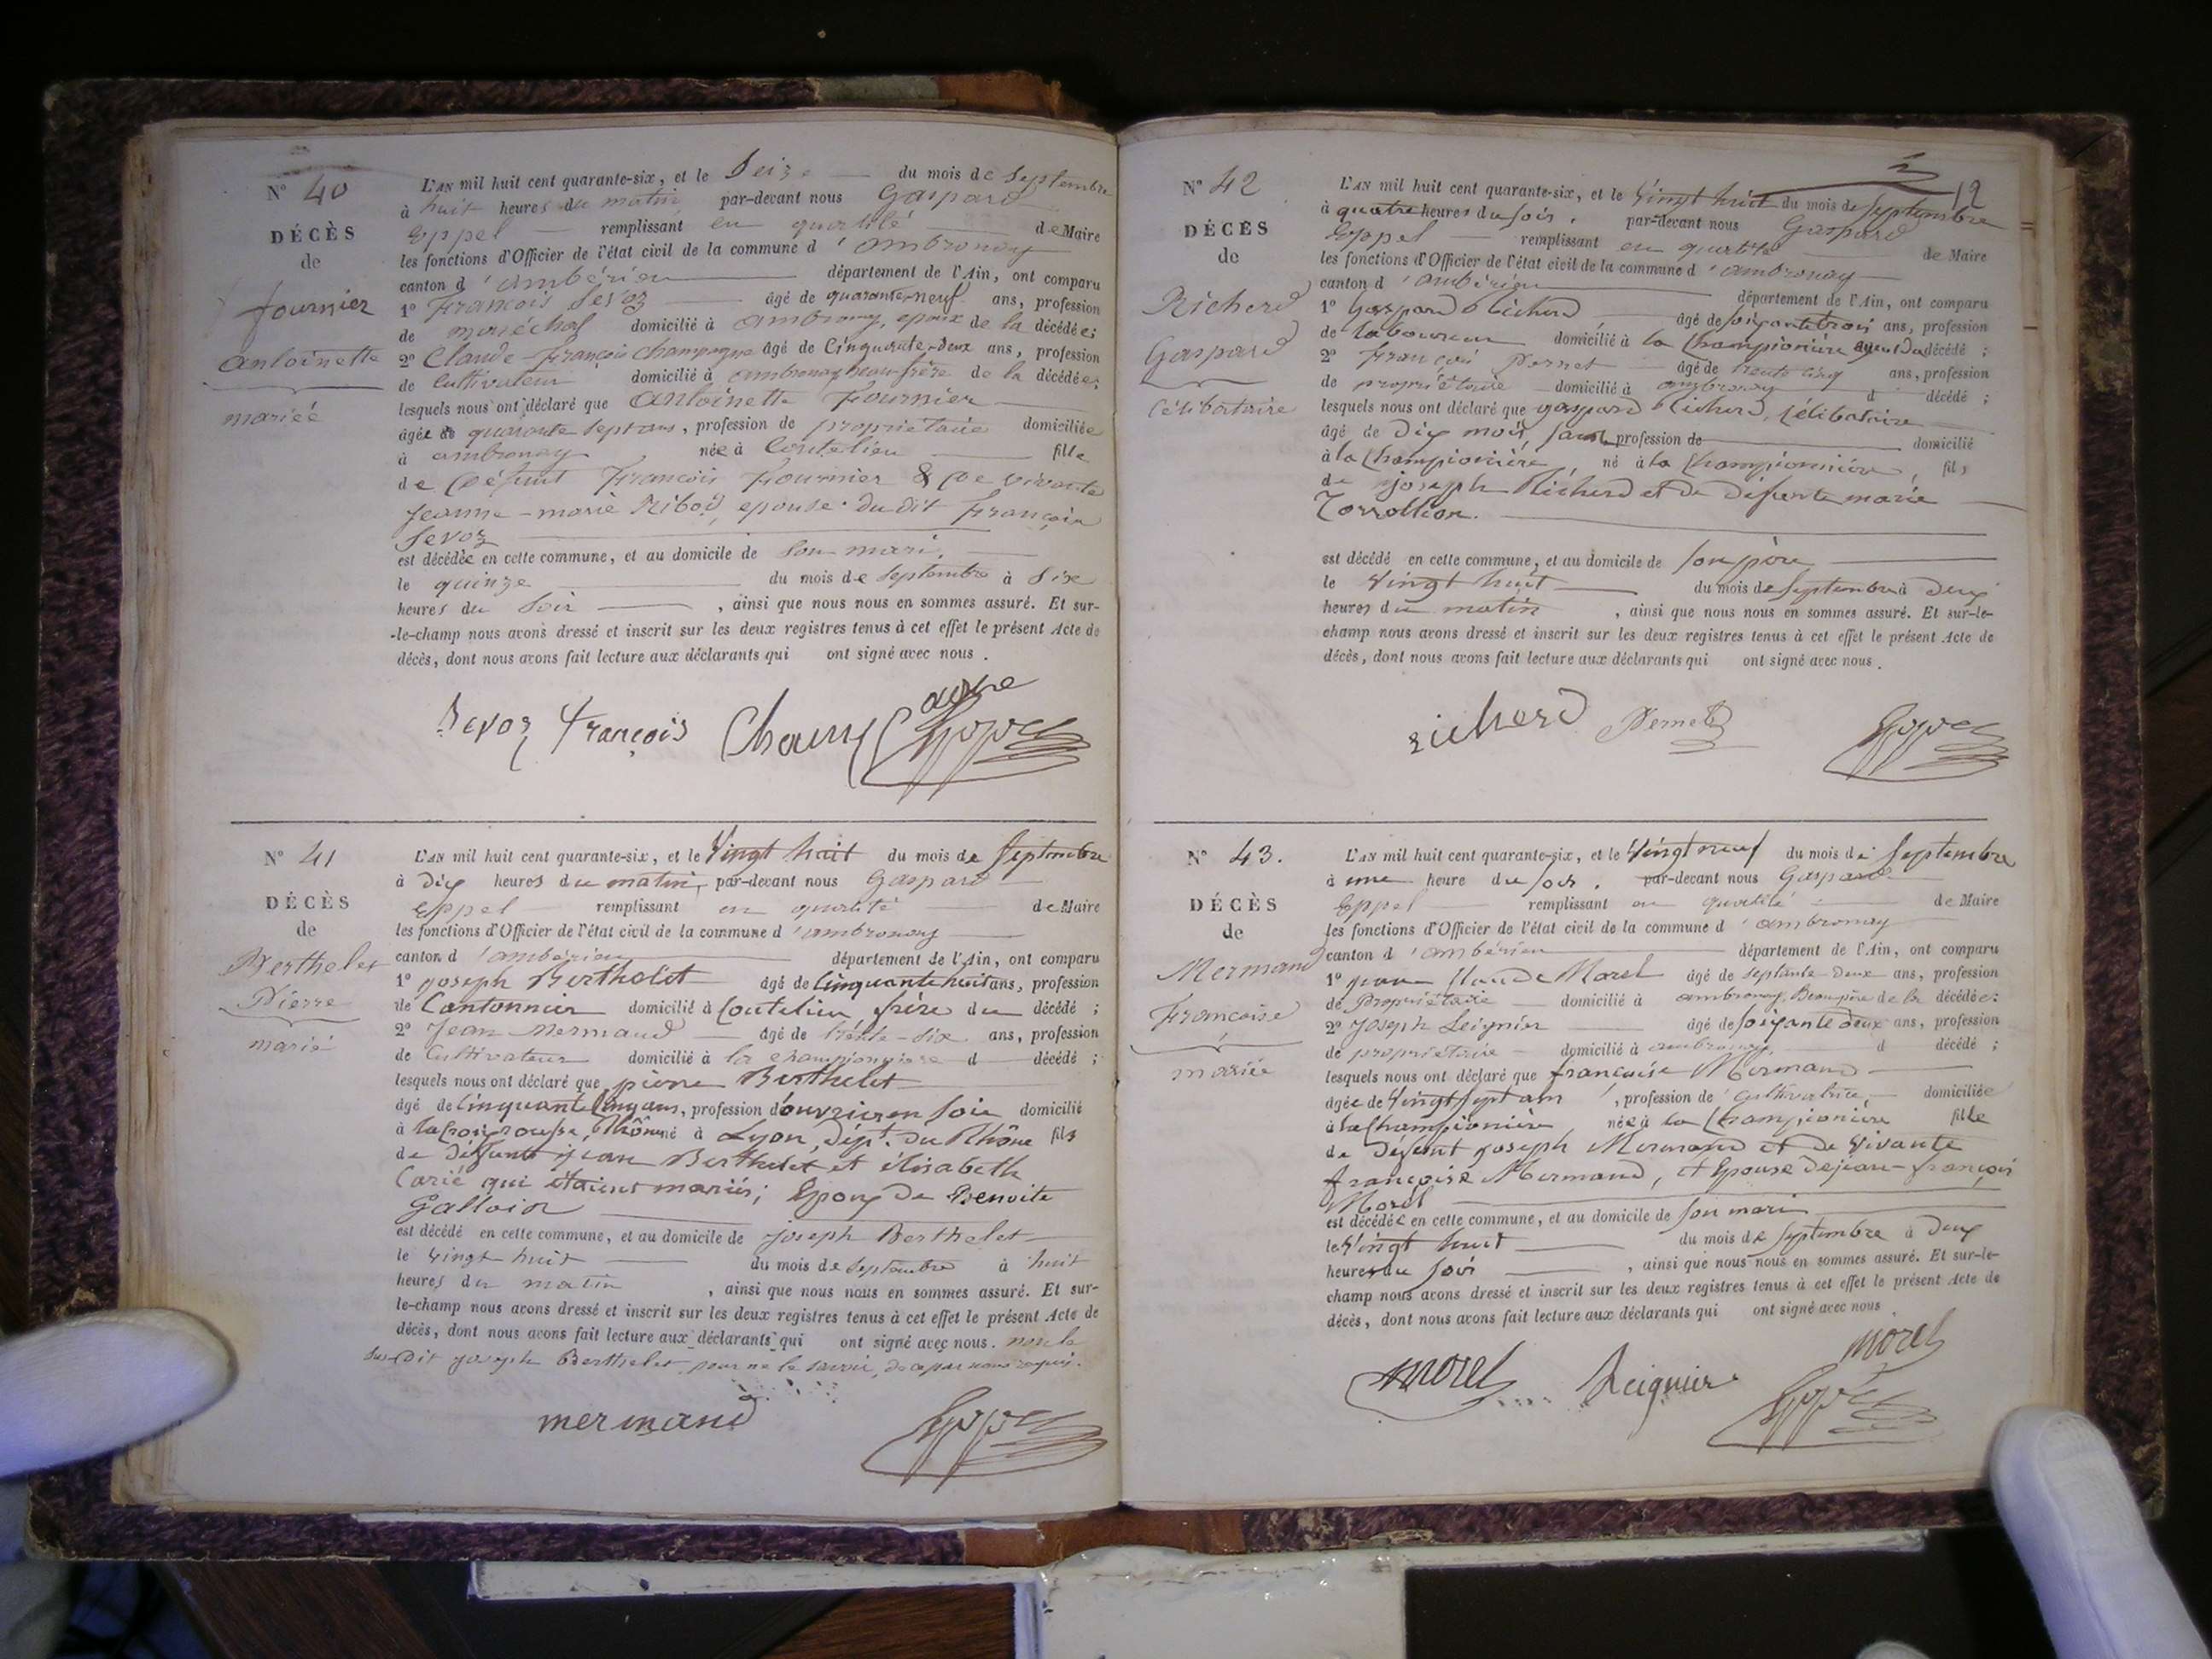 N° 40
DÉCÈS
de
fournier
antoinette
mariée
L'AN mil huit cent quarante-six, et le Seize du mois de Septembre
à huit heures du matin par-devant nous Gaspard
Eppel remplissant en qualité de Maire
les fonctions d'Officier de l'état civil de la commune d'ambronay
canton d'ambérieu département de l'Ain, ont comparu
1° François Sevoz âgé de quarante-neuf ans, profession
de maréchal domicilié à ambronay, epoux de la décédée;
2° Claude-françois Champagne âgé de Cinquante-deux ans, profession
de Cultivateur domicilié à ambronay beau frère de la décédée;
lesquels nous ont déclaré que Antoinette Fournier
âgée de quarante sept ans, profession de propriétaire domiciliée
à ambronay née à Coutelieu fille
de défunt François Fournier & de vivante
Jeanne-marie Ribod, epouse du dit François
Sevoz
est décédée en cette commune, et au domicile de Son mari,
le quinze du mois de Septembre à Six
heures du Soir, ainsi que nous nous en sommes assuré. Et sur-
-le-champ nous avons dressé et inscrit sur les deux registres tenus à cet effet le présent Acte de
décès, dont nous avons fait lecture aux déclarants qui ont signé avec nous.
Sevoz François Champagne Eppel
N° 41
DÉCÈS
de
Berthelet
Pierre
marié
L'AN mil huit cent quarante-six, et le Vingt huit du mois de Septembre
à dix heures du matin, par-devant nous Gaspard
Eppel remplissant en qualité de Maire
les fonctions d'Officier de l'état civil de la commune d'ambronay
canton d'ambérieu département de l'Ain, ont comparu
1° joseph Berthelet âgé de Cinquante huit ans, profession
de Cantonnier domicilié à Coutelieu, frère du décédé;
2° Jean Mermand âgé de trente-six ans, profession
de Cultivateur domicilié à la championniere d décédé;
lesquels nous ont déclaré que pierre Berthelet
âgé de Cinquante Cinq ans, profession d'ouvrier en Soie domicilié
à la Croix rousse, Rhône né à Lyon, dépt. du Rhône fils
de défunt jean Berthelet et élisabeth
Carié qui étaient mariés; Epoux de Benoite
Galloix
est décédé en cette commune, et au domicile de Joseph Berthelet
le Vingt huit du mois de Septembre à huit
heures du matin, ainsi que nous nous en sommes assuré. Et sur-
le-champ nous avons dressé et inscrit sur les deux registres tenus à cet effet le présent Acte de
décès, dont nous avons fait lecture aux déclarants qui ont signé avec nous. non le
Sus-Dit joseph Berthelet pour ne le savoir, de ce par nous requis.
mermand Eppel
12
N° 42
DÉCÈS
de
Richerd
Gaspard
Célibataire
L'AN mil huit cent quarante-six, et le Vingt huit du mois de Septembre
à quatre heures du soir, par-devant nous Gaspard
Eppel remplissant en qualité de Maire
les fonctions d'Officier de l'état civil de la commune d'ambronay
canton d'ambérieu département de l'Ain, ont comparu
1° Gaspard Richerd âgé de soixante trois ans, profession
de laboureur domicilié à la Championière ayeul du décédé;
2° François Pernet âgé de trente cinq ans, profession
de propriétaire domicilié à ambronay d décédé;
lesquels nous ont déclaré que gaspard Richerd, Célibataire
âgé de Dix mois, sans profession de domicilié
à la Championière, né à la Championnière, fils
de joseph Richerd et de défunte marie
est décédé en cette commune, et au domicile de son père
le Vingt huit du mois de Septembre à Deux
heures du matin, ainsi que nous nous en sommes assuré. Et sur-le-
champ nous avons dressé et inscrit sur les deux registres tenus à cet effet le présent Acte de
décès, dont nous avons fait lecture aux déclarants qui ont signé avec nous.
richerd Pernet Eppel
N° 43.
DÉCÈS
de
Mermand
Françoise
mariée
L'AN mil huit cent quarante-six, et le Vingt neuf du mois de Septembre
à une heure du soir, par-devant nous Gaspard
Eppel remplissant en qualité de Maire
les fonctions d'Officier de l'état civil de la commune d'ambronay
canton d'ambérieu département de l'Ain, ont comparu
1° jean Claude Morel âgé de septante-deux ans, profession
de Propriétaire domicilié à ambronay, Beaupère de la décédée;
2° Joseph Leignier âgé de soixante deux ans, profession
de propriétaire domicilié à ambronay, d décédé;
lesquels nous ont déclaré que françoise Mermand
âgée de Vingt sept ans, profession de Cultivatrice, domiciliée
à la Championière née à la Championière fille
de défunt joseph Mermand et de vivante
françoise Mermand, et Epouse de jean-françois
Morel
est décédée en cette commune, et au domicile de son mari
le Vingt huit du mois de Septembre à deux
heures du soir, ainsi que nous nous en sommes assuré. Et sur-le-
champ nous avons dressé et inscrit sur les deux registres tenus à cet effet le présent Acte de
décès, dont nous avons fait lecture aux déclarants qui ont signé avec nous.
morel
morel Leignier Eppel